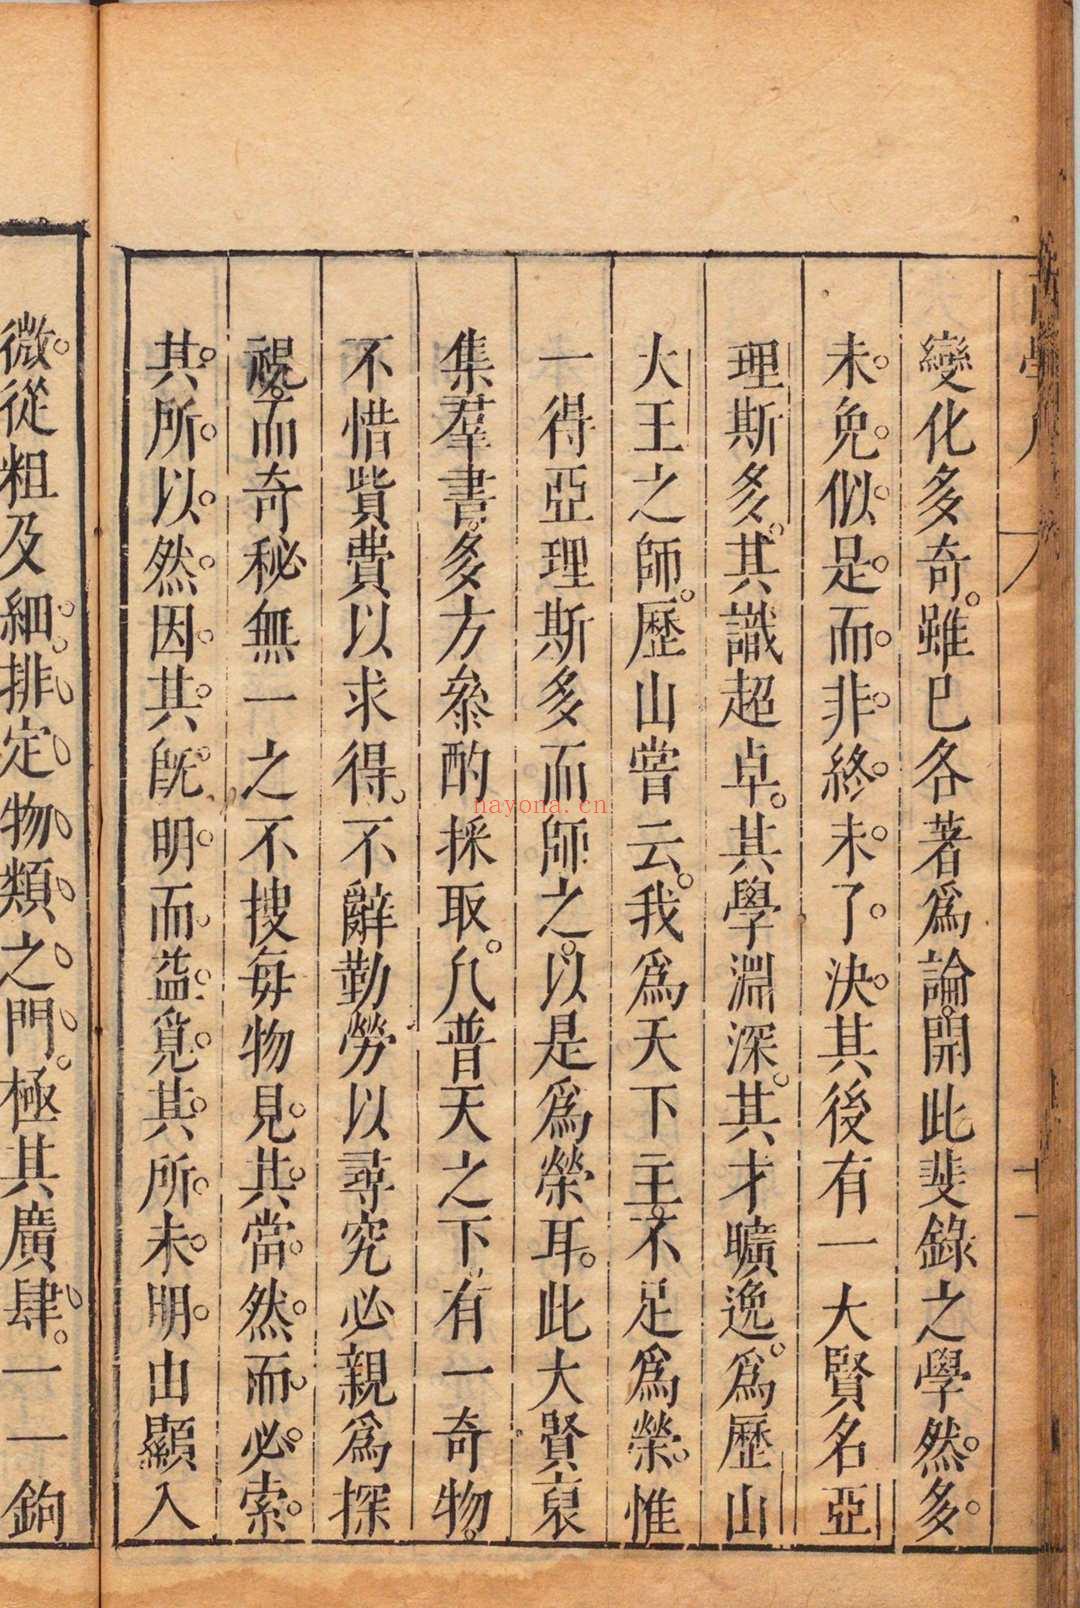 變化多奇雖已各著爲論開此斐錄之學然多
未免似是而非終未了決其後有一大賢名亞
理斯多其識超卓其學淵深其才曠逸爲歷山
大王之師歷山嘗云我爲天下主不足爲榮惟
一得亞理斯多而師之以是爲榮耳此大賢裒
集羣書多方叅酌採取凡普天之下有一奇物
不惜貲費以求得不辭勤勞以尋究必親爲探
視而奇秘無一之不搜每物見其當然而必索
其所以然因其旣明而益覔其所未明由顯入
微從粗及細排定物類之門極其廣肆一一鉤
nayona.cn